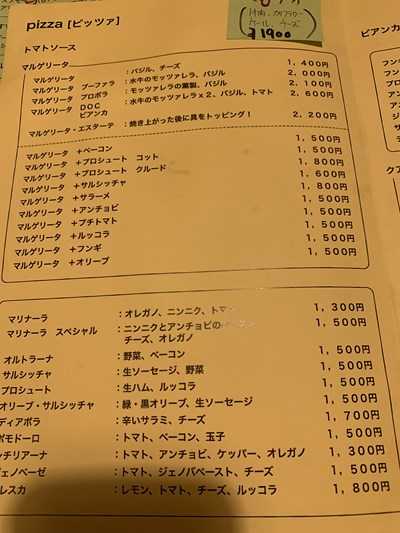 pizza [ピッツァ]
付肉、カリフラワー
ケール、チーズ
¥1900
トマトソース
マルゲリータ
マルゲリータ ：バジル、チーズ 1,400円
マルゲリータ ブーファラ ：水牛のモッツァレラ、バジル 2,000円
マルゲリータ プロボラ ：モッツァレラの燻製、バジル 2,100円
マルゲリータ DOC ：水牛のモッツァレラx2、バジル、トマト 2,600円
ビアンカ
マルゲリータ・エスターテ ：焼き上がった後に具をトッピング！ 2,200円
マルゲリータ ＋ベーコン 1,500円
マルゲリータ ＋プロシュート コット 1,500円
マルゲリータ ＋プロシュート クルード 1,800円
マルゲリータ ＋サルシッチャ 1,600円
マルゲリータ ＋サラーメ 1,800円
マルゲリータ ＋アンチョビ 1,500円
マルゲリータ ＋プチトマト 1,500円
マルゲリータ ＋ルッコラ 1,500円
マルゲリータ ＋フンギ 1,500円
マルゲリータ ＋オリーブ 1,500円
マリナーラ ：オレガノ、ニンニク、トマト 1,300円
マリナーラ スペシャル ：ニンニクとアンチョビの 1,500円
チーズ、オレガノ
オルトラーナ ：野菜、ベーコン 1,500円
サルシッチャ ：生ソーセージ、野菜 1,500円
プロシュート ：生ハム、ルッコラ 1,500円
オリーブ・サルシッチャ ：緑・黒オリーブ、生ソーセージ 1,500円
ディアボラ ：辛いサラミ、チーズ 1,700円
ポモドーロ ：トマト、ベーコン、玉子 1,500円
ッチリアーナ ：トマト、アンチョビ、ケッパー、オレガノ 1,300円
ジェノベーゼ ：トマト、ジェノバペースト、チーズ 1,500円
レスカ ：レモン、トマト、チーズ、ルッコラ 1,800円
ビアンカ